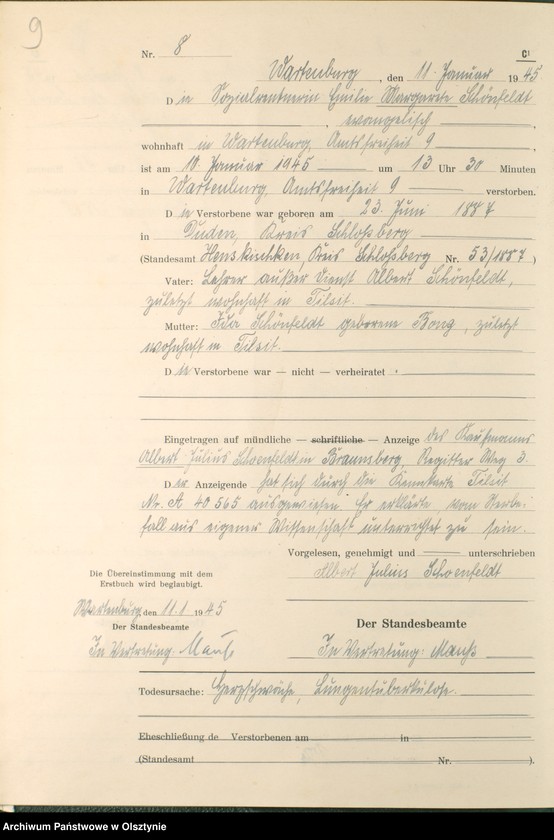 9
Nr. 8 C1
Wartenburg, den 11. Januar 1945
Die Sozialrentnerin Emilie Margarete Schönfeldt
, evangelisch ,
wohnhaft in Wartenburg, Amtsfreiheit 9 ,
ist am 10. Januar 1945 um 13 Uhr 30 Minuten
in Wartenburg, Amtsfreiheit 9 verstorben.
Die Verstorbene war geboren am 23. Juni 1887
in Duden, Kreis Schloßberg
(Standesamt Henskischken, Kreis Schloßberg Nr. 53/1887)
Vater: Lehrer außer Dienst Albert Schönfeldt,
zuletzt wohnhaft in Tilsit.
Mutter: Ida Schönfeldt geborene Bong, zuletzt
wohnhaft in Tilsit.
Die Verstorbene war — nicht — verheiratet.
Eingetragen auf mündliche — schriftliche — Anzeige des Kaufmanns
Albert Julius Schoenfeldt in Braunsberg, Weg 3.
Der Anzeigende hat sich durch die Kennkarte Tilsit
Nr. A 40565 ausgewiesen. Er erklärte, vom Sterbe-
fall aus eigener Wissenschaft unterrichtet zu sein.
Vorgelesen, genehmigt und unterschrieben
Albert Julius Schoenfeldt
Die Übereinstimmung mit dem
Erstbuch wird beglaubigt.
Wartenburg, den 11.1.1945
Der Standesbeamte
In Vertretung:
Der Standesbeamte
In Vertretung:
Todesursache: Herzschwäche, Lungentuberkulose.
Eheschließung de Verstorbenen am in
(Standesamt Nr. ).
Archiwum Państwowe w Olsztynie